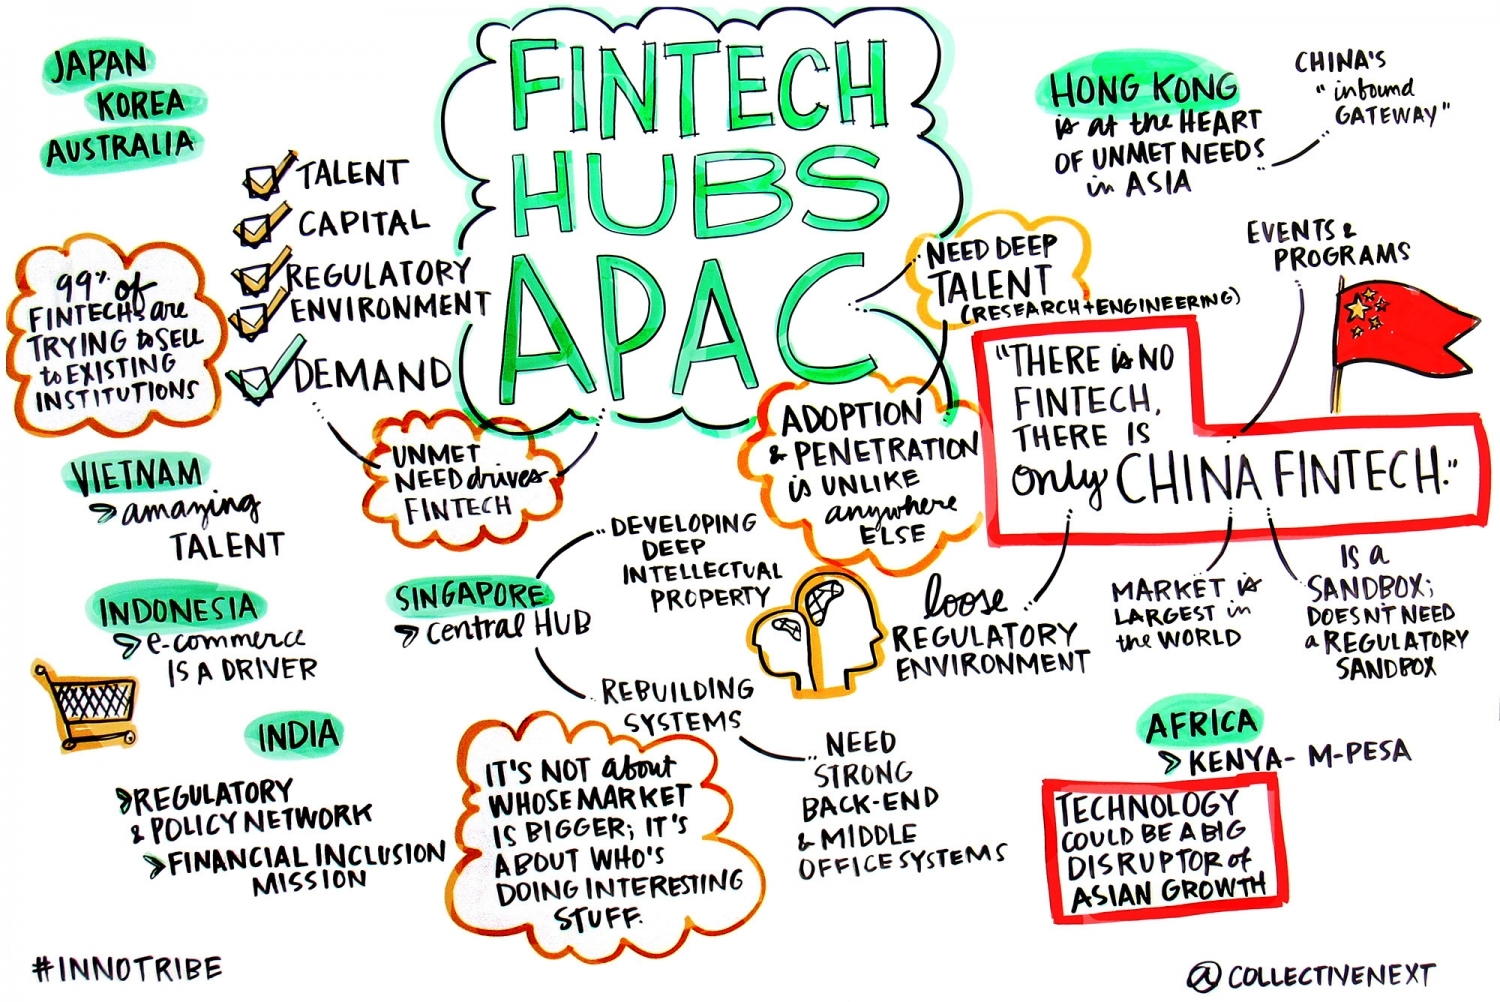 FINTECH
HUBS
APAC
JAPAN
KOREA
AUSTRALIA
TALENT
CAPITAL
REGULATORY
ENVIRONMENT
DEMAND
99% of
FINTECHs are
TRYING to SELL
to EXISTING
INSTITUTIONS
UNMET
NEED drives
FINTECH
VIETNAM
amazing
TALENT
INDONESIA
e-commerce
IS A DRIVER
INDIA
REGULATORY
& POLICY NETWORK
FINANCIAL INCLUSION
MISSION
SINGAPORE
central HUB
DEVELOPING
DEEP
INTELLECTUAL
PROPERTY
REBUILDING
SYSTEMS
NEED
STRONG
BACK-END
& MIDDLE
OFFICE SYSTEMS
IT'S NOT about
WHOSE MARKET
IS BIGGER; IT'S
ABOUT WHO'S
DOING INTERESTING
STUFF.
NEED DEEP
TALENT
(RESEARCH + ENGINEERING)
ADOPTION
& PENETRATION
is UNLIKE
anywhere
ELSE
HONG KONG
is at the HEART
OF UNMET NEEDS
in ASIA
CHINA'S
"inbound
GATEWAY"
EVENTS &
PROGRAMS
"THERE is NO
FINTECH,
THERE IS
only CHINA FINTECH."
loose
REGULATORY
ENVIRONMENT
MARKET is
LARGEST in
the WORLD
IS a
SANDBOX;
DOESN'T NEED
a REGULATORY
SANDBOX
AFRICA
KENYA - M-PESA
TECHNOLOGY
COULD BE A BIG
DISRUPTOR of
ASIAN GROWTH
#INNOTRIBE
@COLLECTIVENEXT